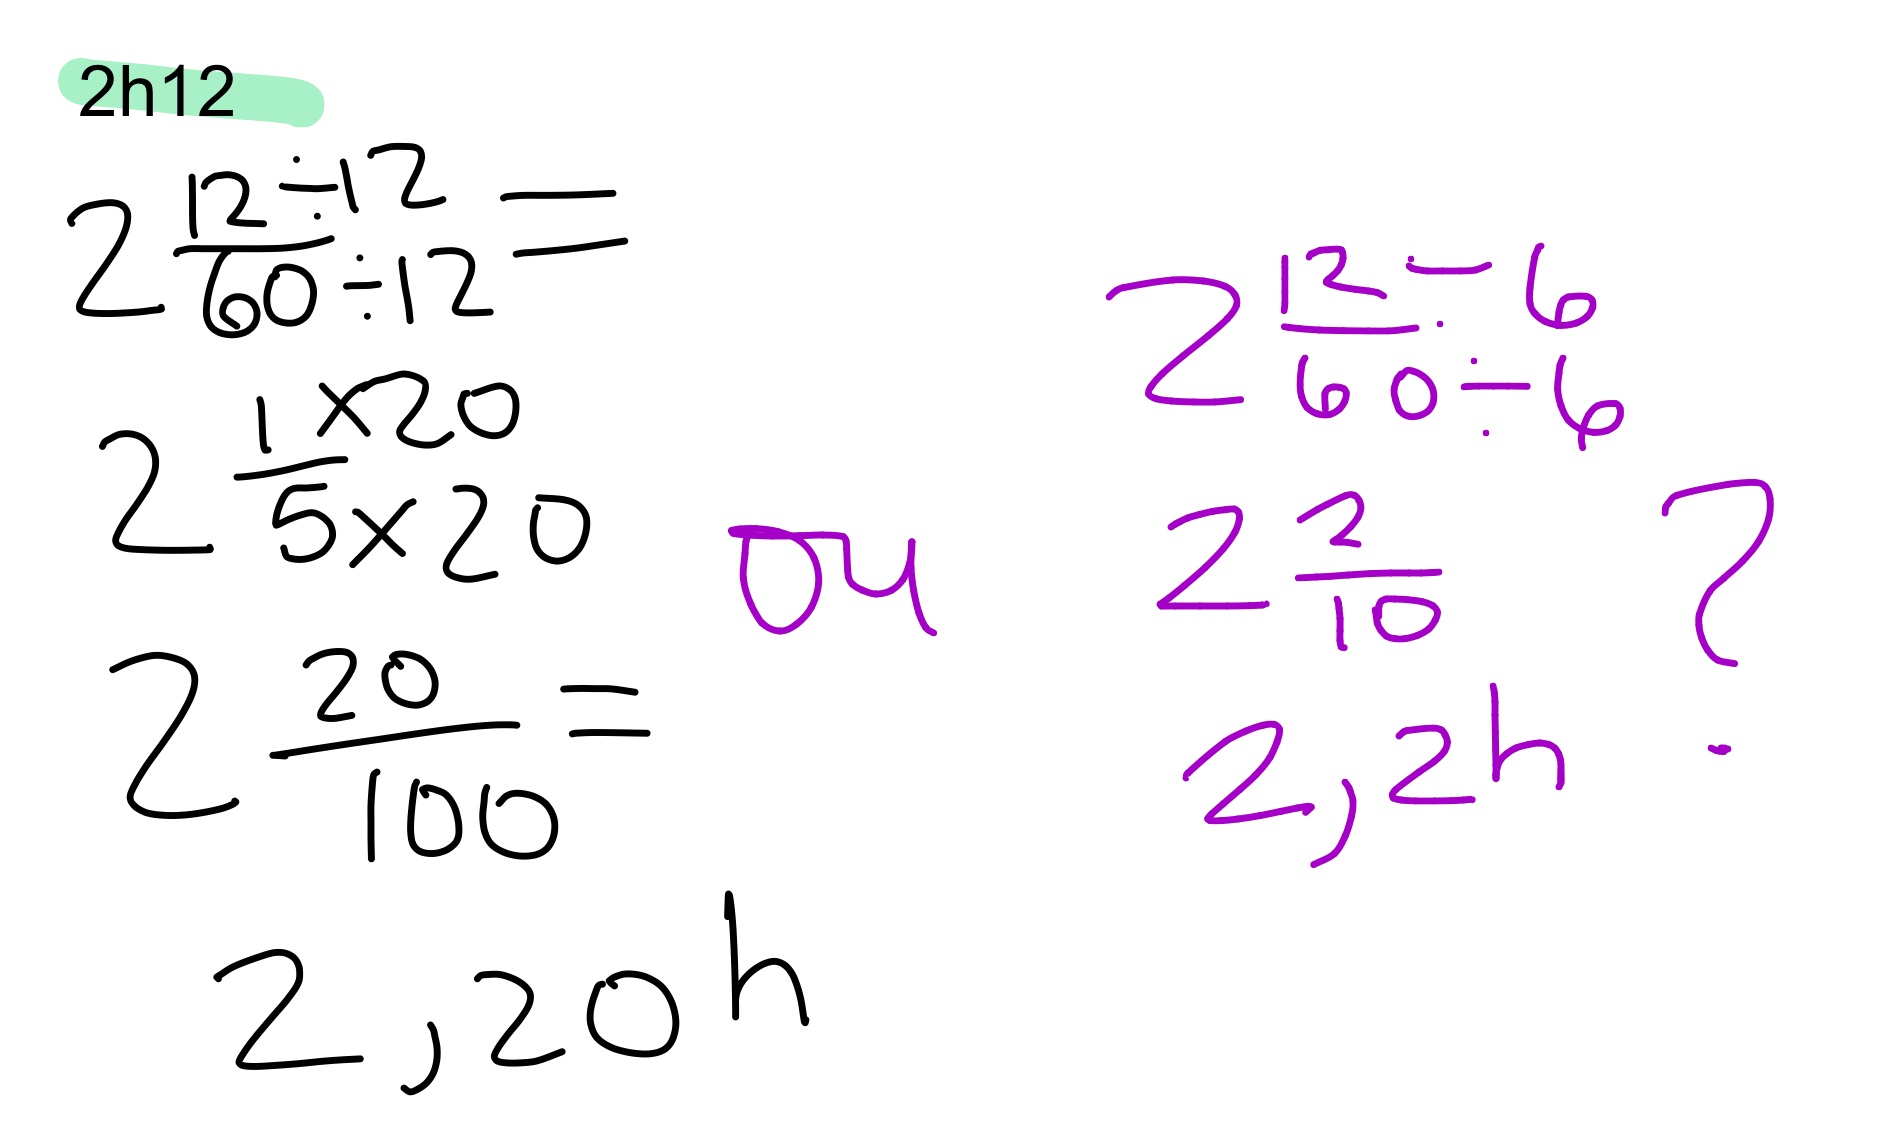 2h12
2 12÷12 =
60÷12
2 1×20
5×20
2 20 =
100
2,20h
ou
2 12÷6
60÷6
2 2
10
2,2h
?